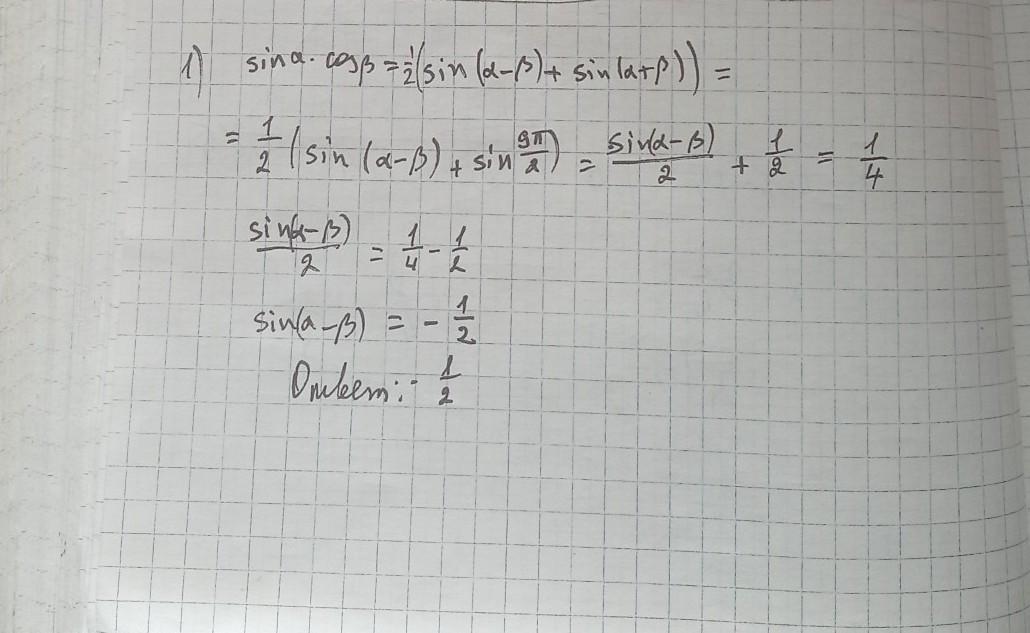 1) sinα · cosβ = 1/2 (sin(α-β) + sin(α+β)) =
= 1/2 (sin (α-β) + sin 9π/2) = sin(α-β)/2 + 1/2 = 1/4
sin(α-β)/2 = 1/4 - 1/2
sin(α-β) = - 1/2
Ответ: - 1/2